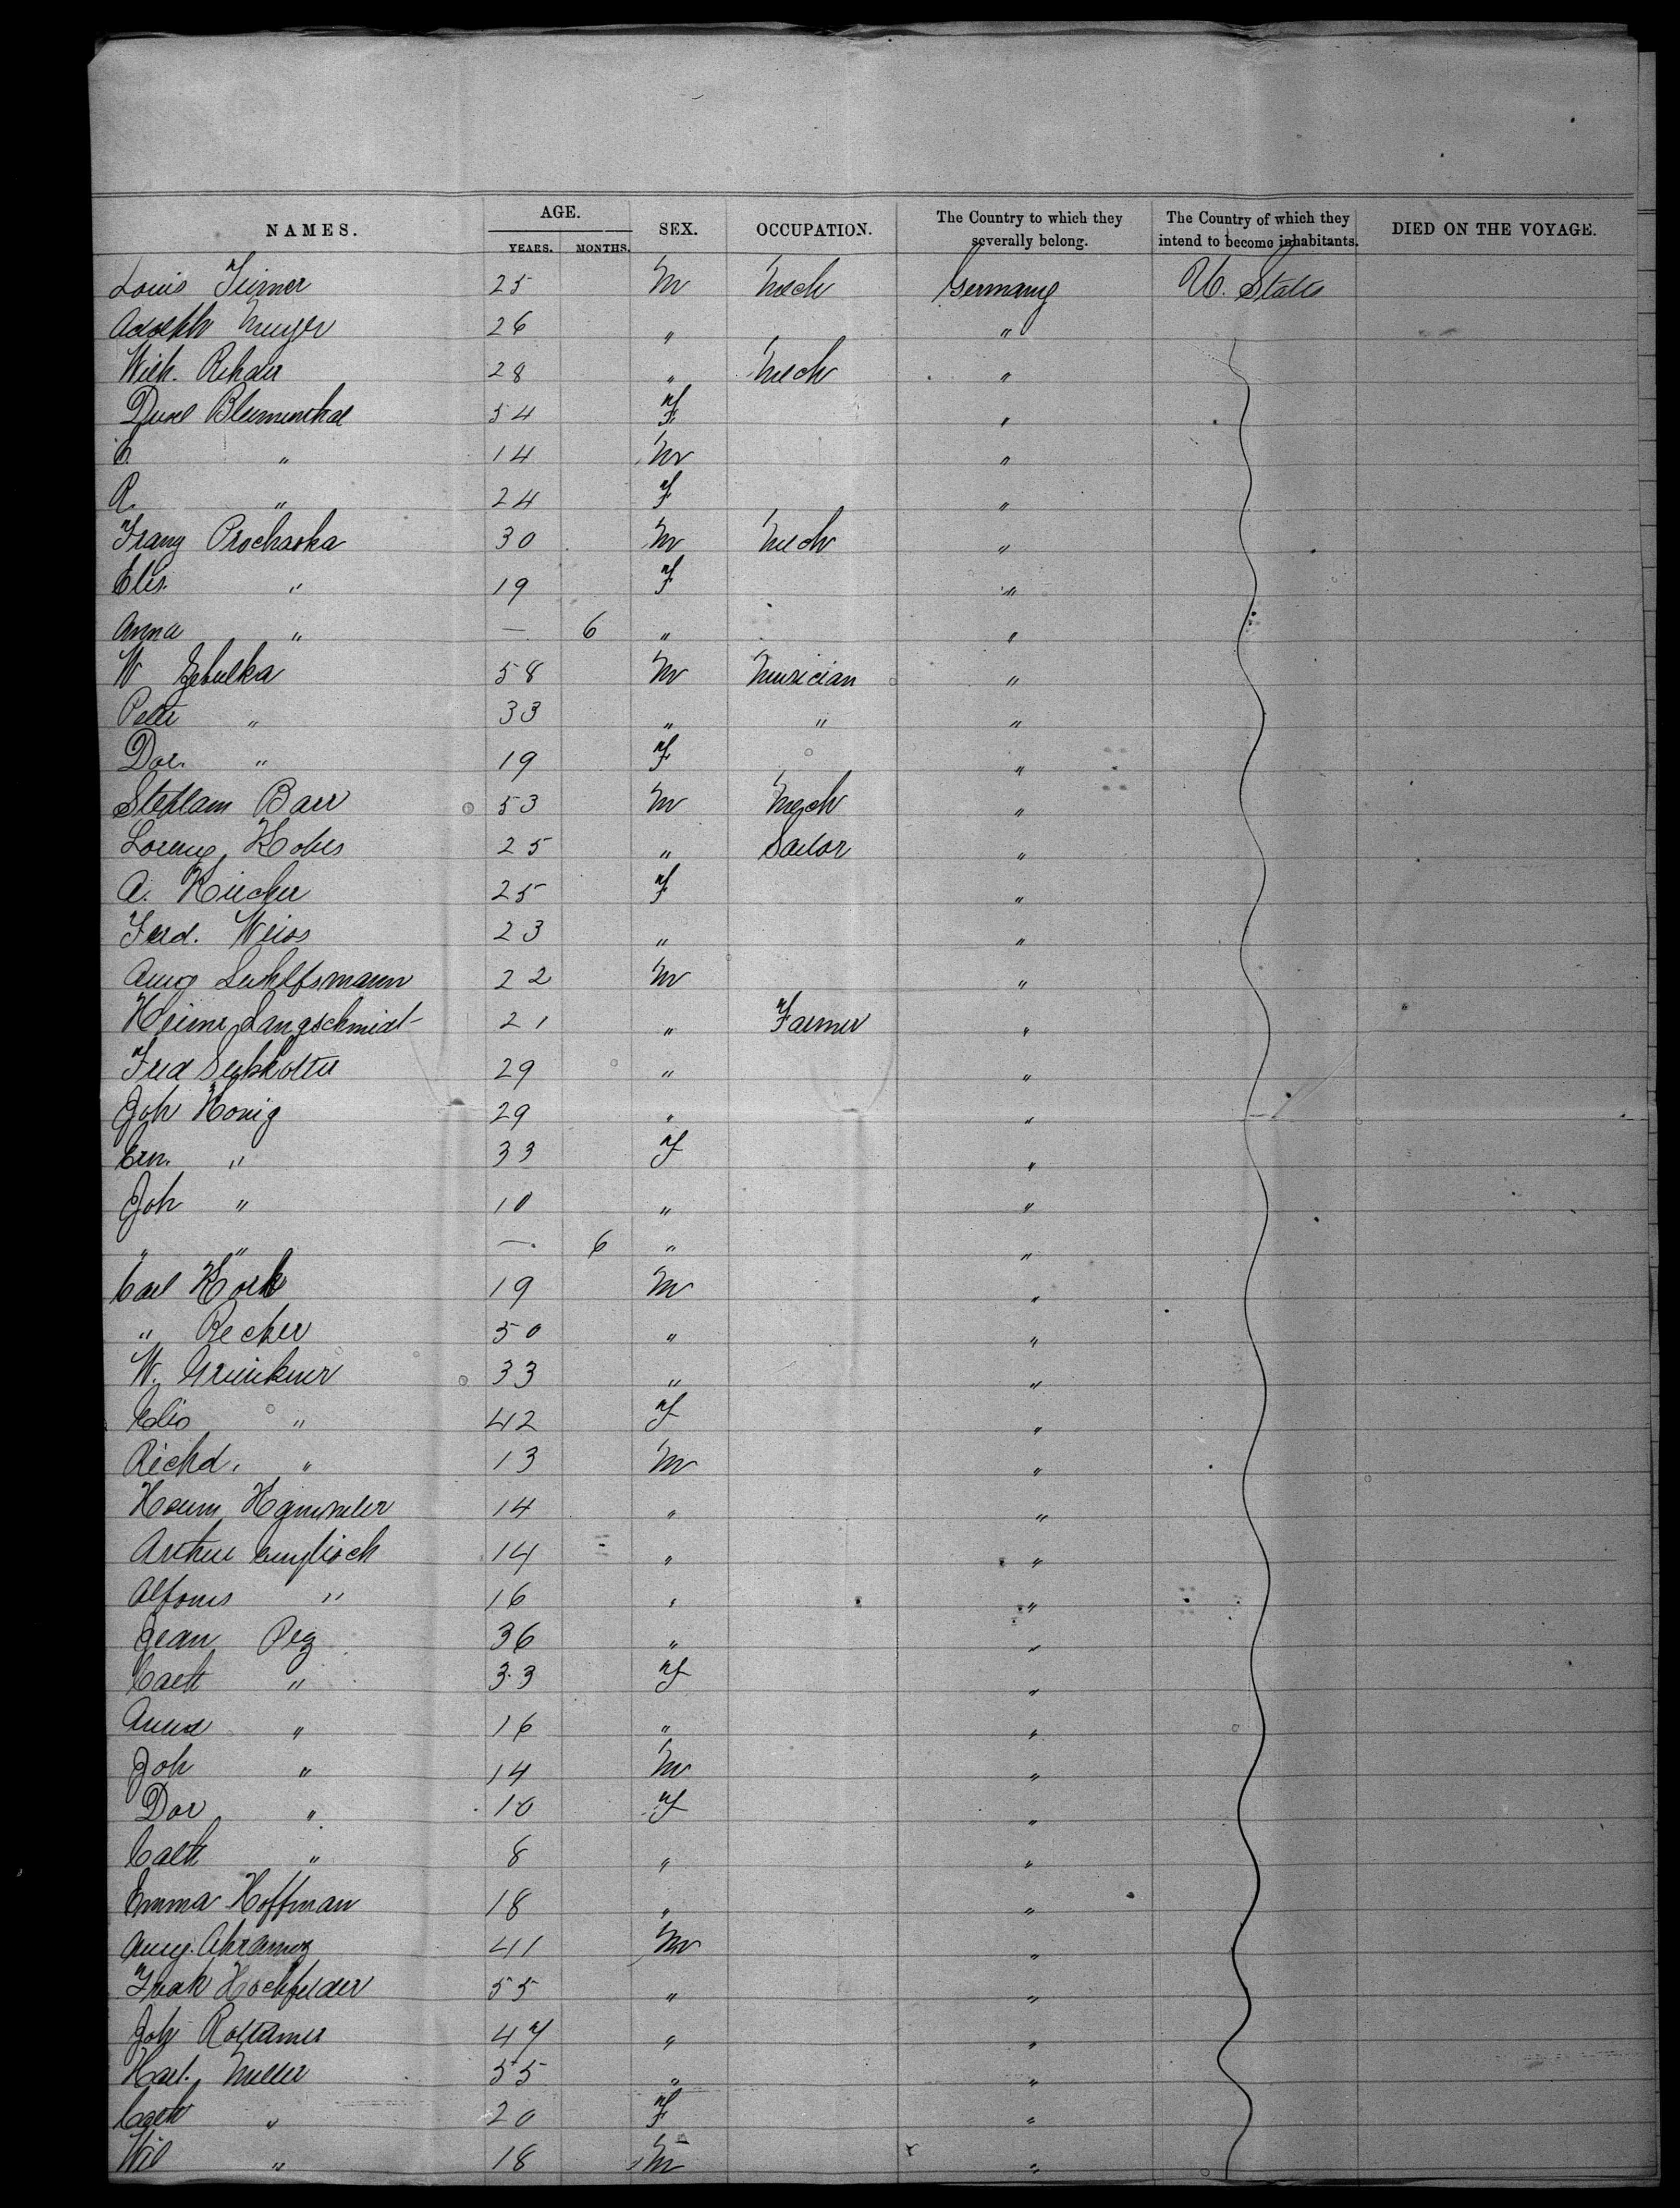 NAMES. AGE. SEX. OCCUPATION. The Country to which they severally belong. The Country of which they intend to become inhabitants. DIED ON THE VOYAGE.
YEARS. MONTHS.
Louis 25 M Mech Germany U. States
Adolph Meyer 26 " "
Wilh. 28 " Mech "
Blumenthal 54 F "
C. " 14 M "
R. " 24 F "
Franz Prochaska 30 M Mech "
Elis. " 19 F "
Anna " — 6 " "
W 58 M Musician "
Peter " 33 " " "
Dor. " 19 F "
Baer 53 M Mech "
Lorenz 25 " Sailor "
A. Kircher 25 F "
Ferd. Weiss 23 " "
Aug 22 M "
Langschmidt 21 " Farmer "
Fred 29 " "
Joh Konig 29 " "
Ern. " 33 F "
Joh " 10 " "
" " — 6 " "
Carl Kork 19 M "
" Recher 50 " "
W. 33 " "
Elis " 42 F "
Richd. " 13 M "
14 " "
Arthur 14 " "
Alfons " 16 " "
Jean Peg 36 " "
Cath " 33 F "
Anna " 16 " "
Joh " 14 M "
Dor " 10 F "
Cath " 8 " "
Emma Hoffman 18 " "
Aug. 41 M "
Hochfelder 55 " "
Joh 47 " "
Karl. Muller 55 " "
Cath " 20 F "
Wil " 18 M "